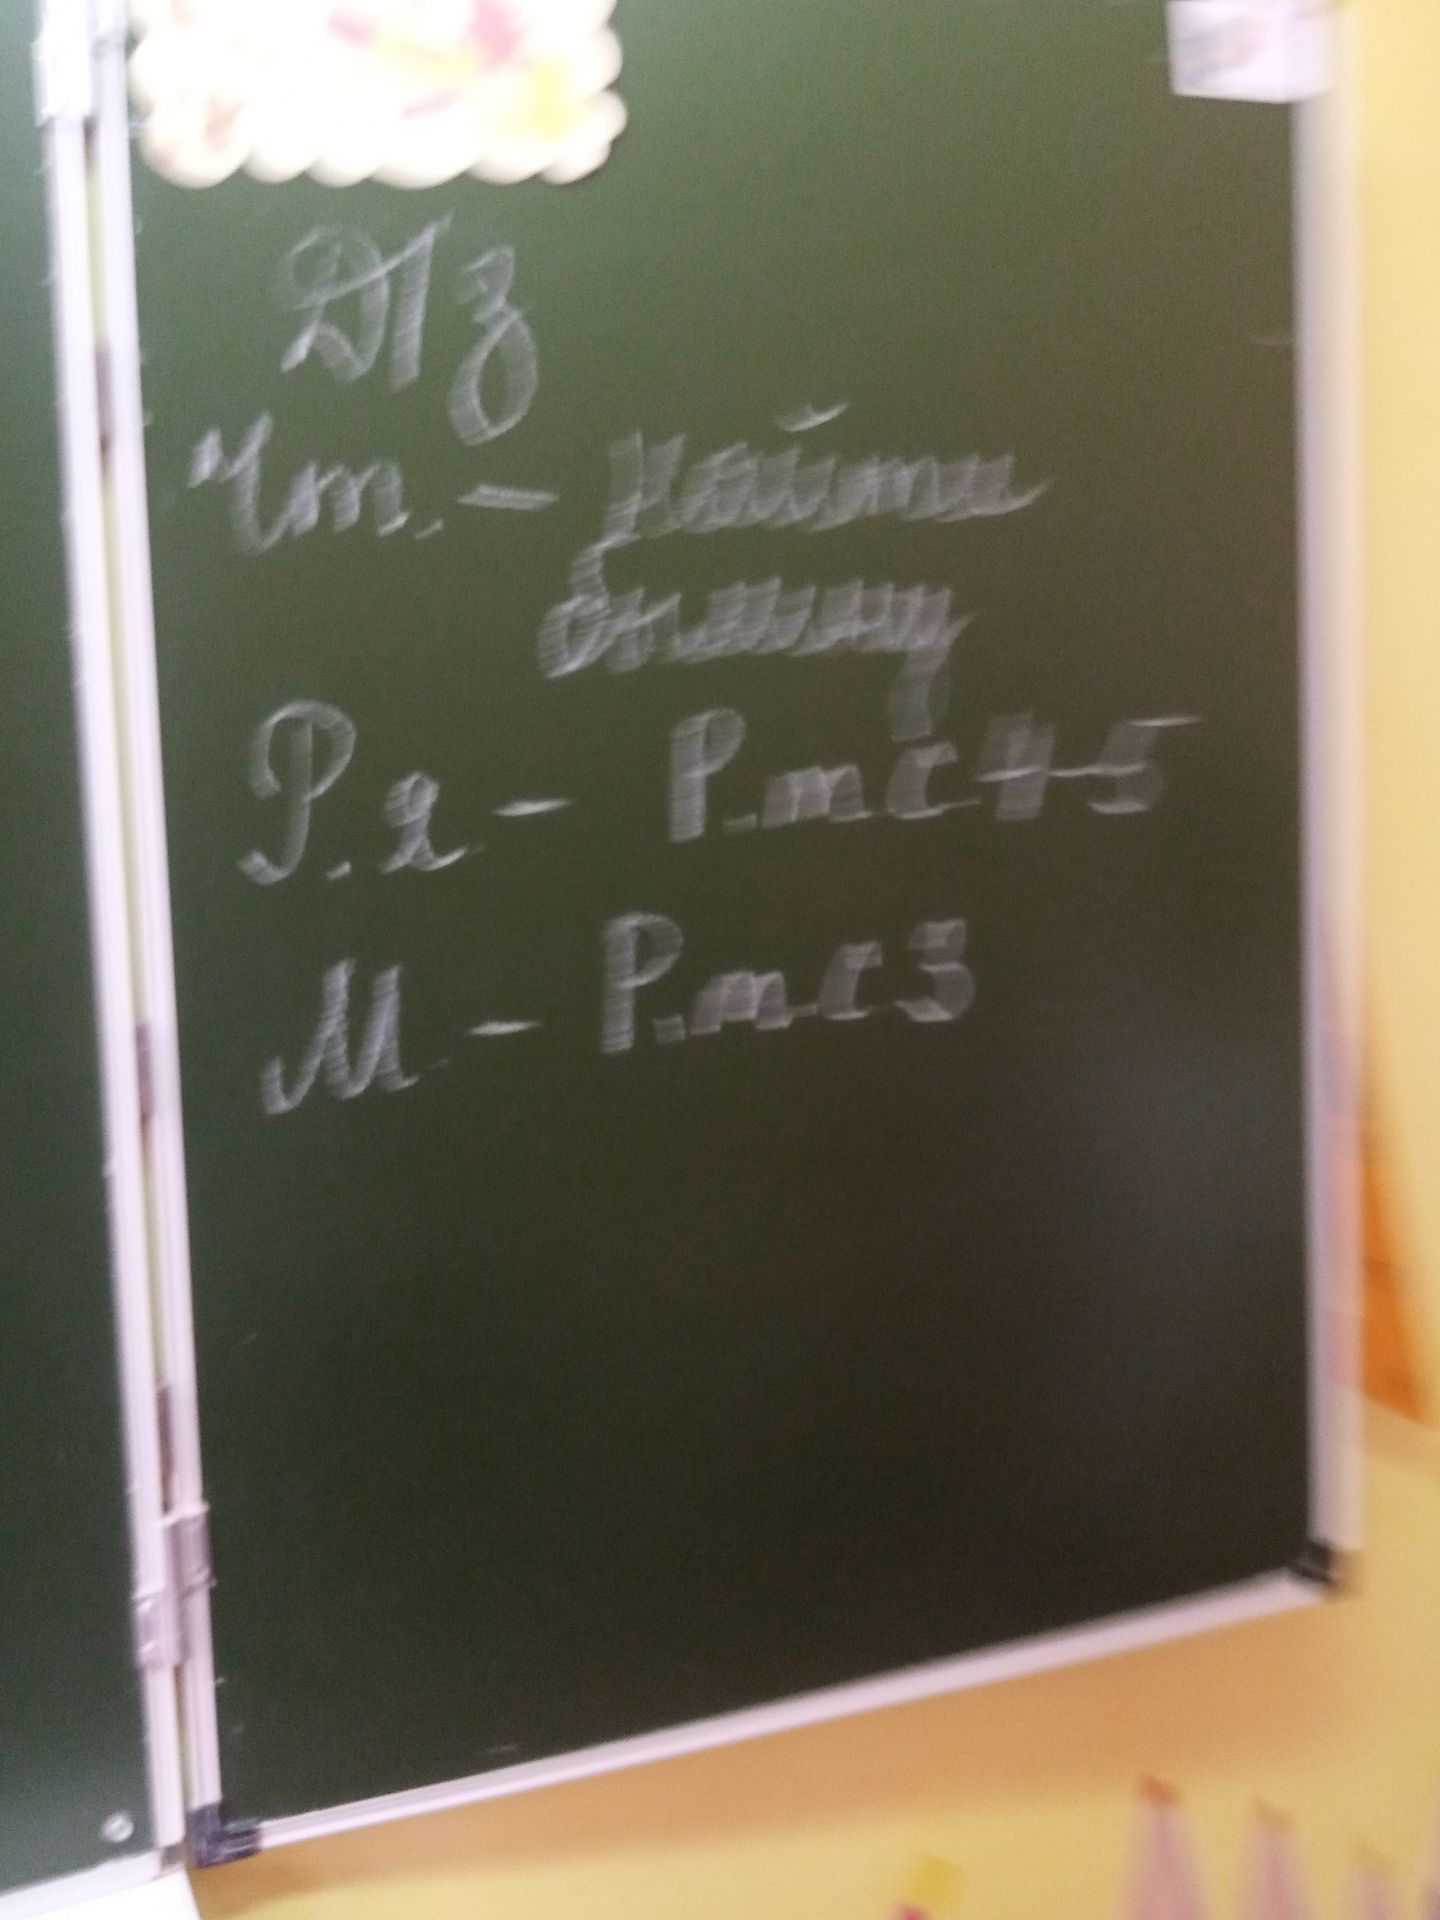 Д/з
Чт. - найти
былину
Р.я - Р.т с 4-5
М - Р.т. с 3